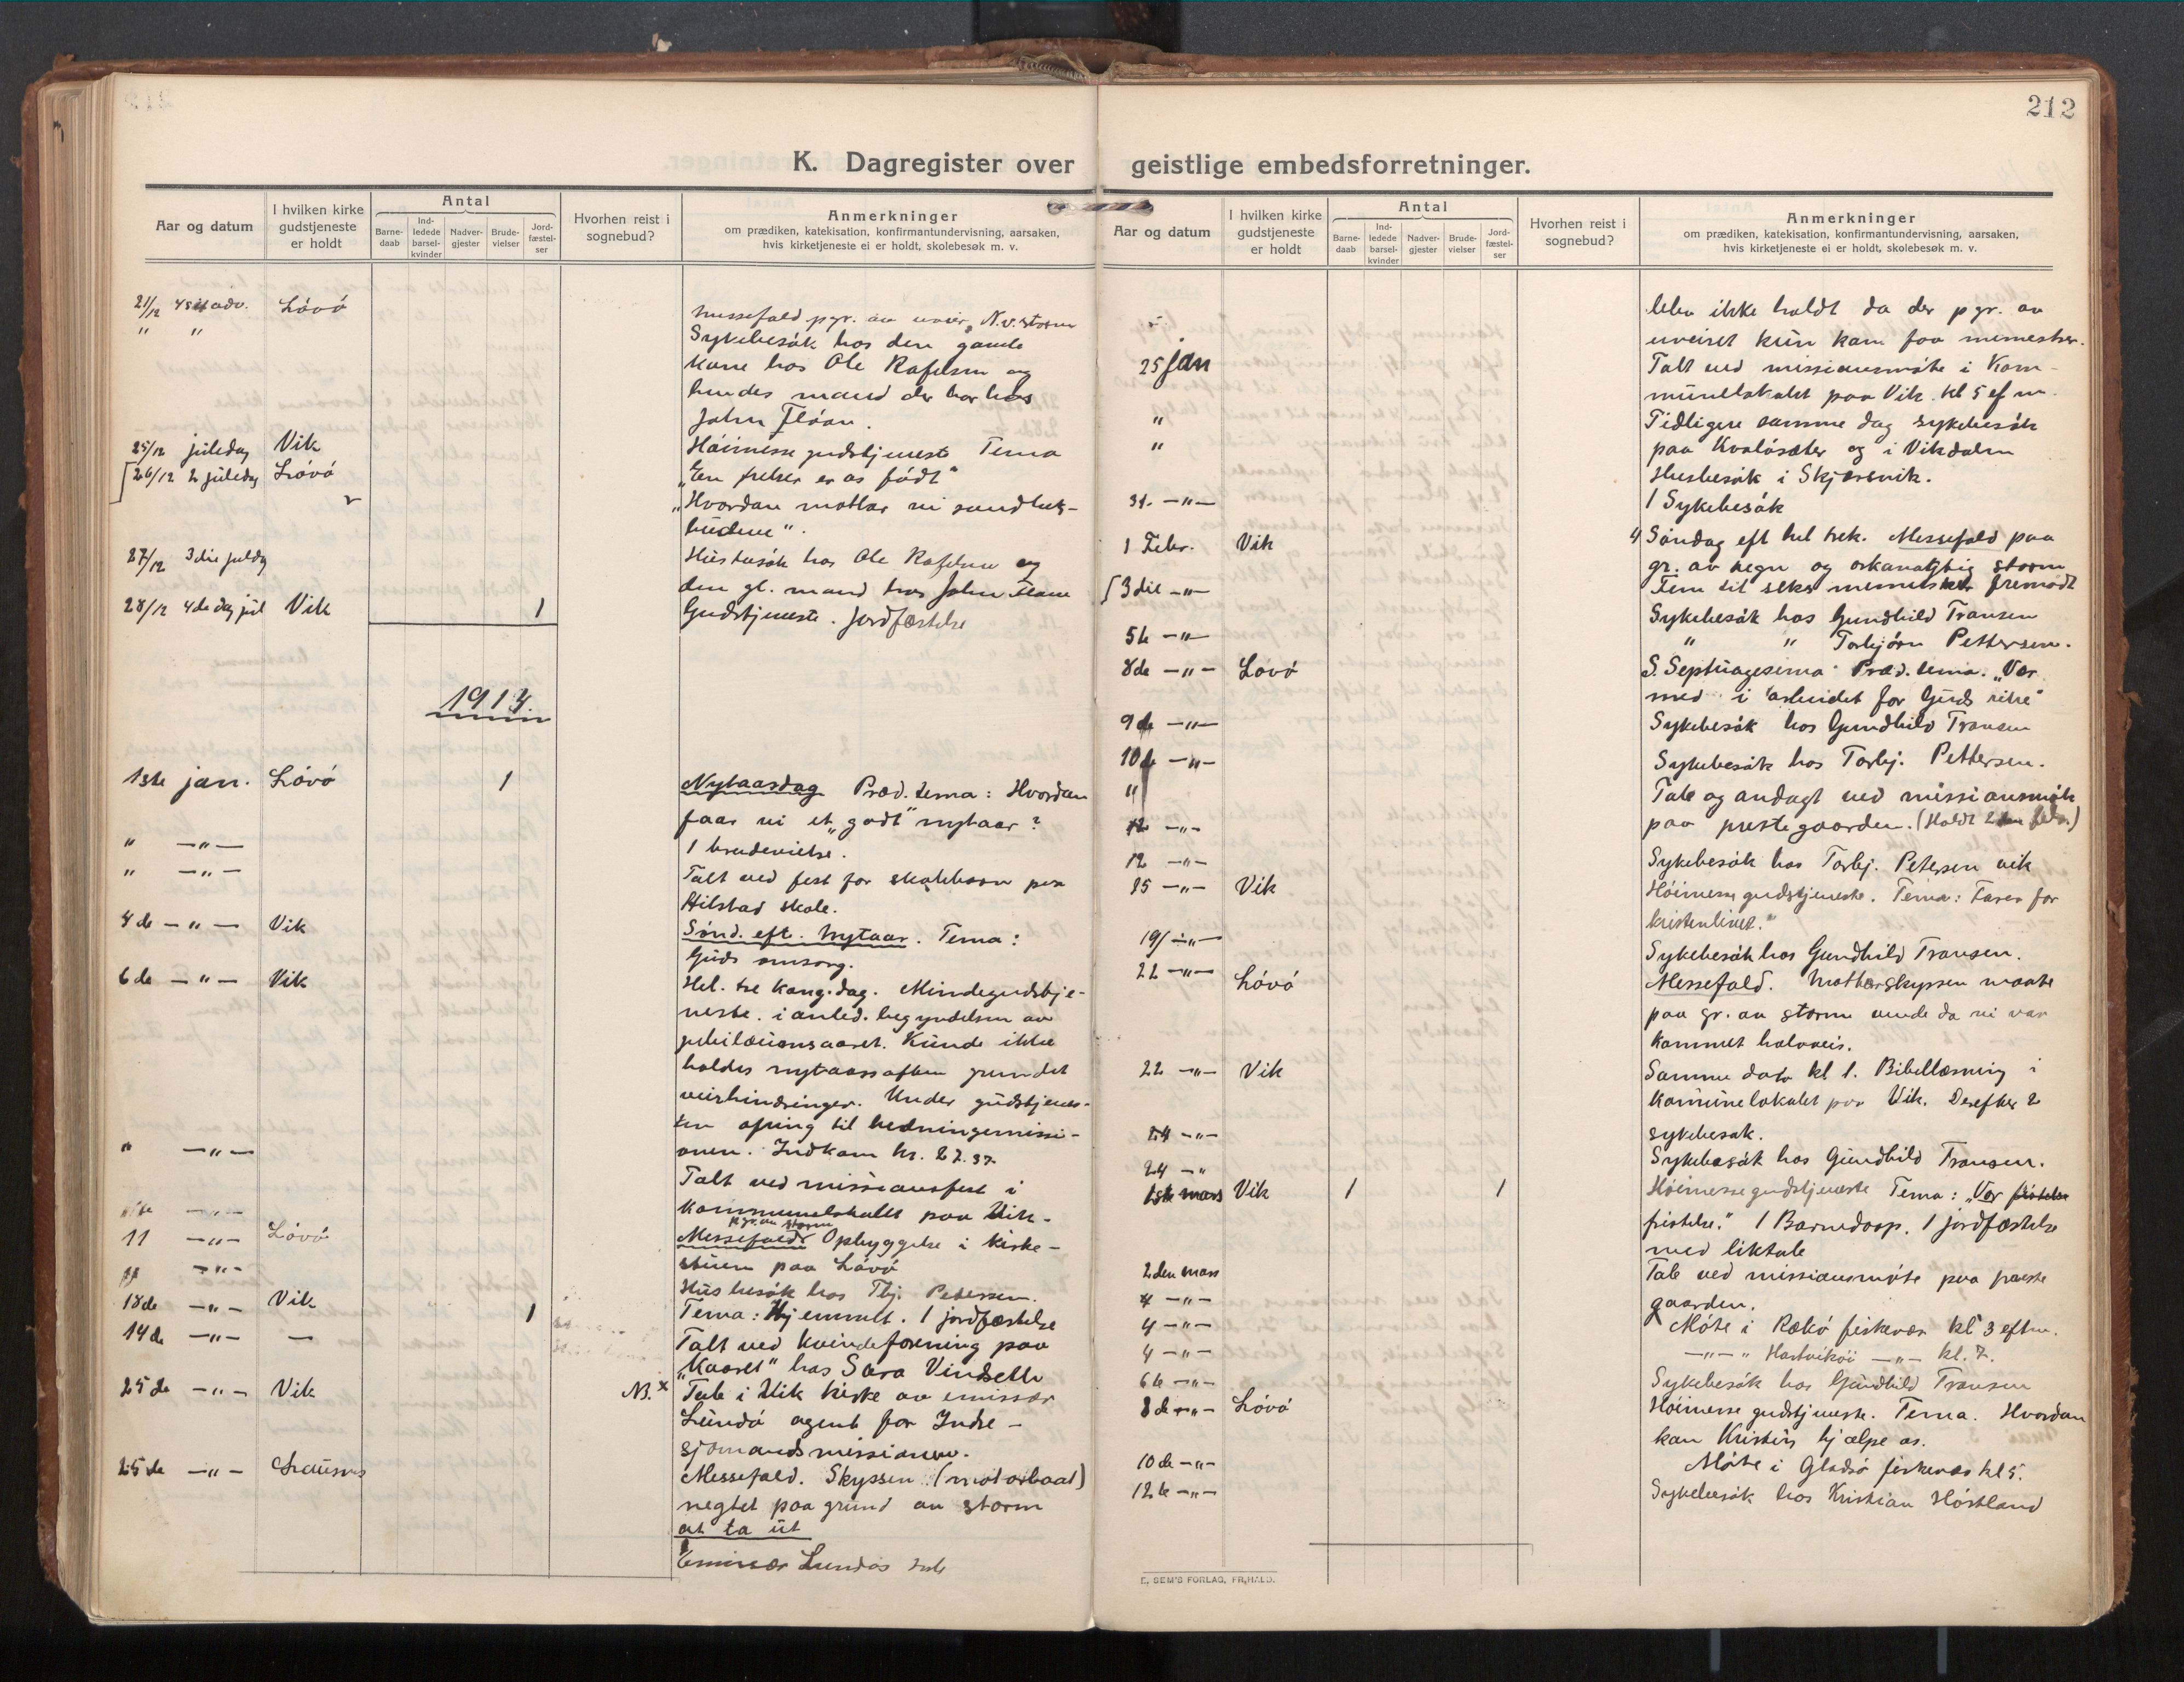 212
K. Dagregister over geistlige embedsforretninger.
Aar og datum
I hvilken kirke gudstjeneste er holdt
Antal
Barnedaab
Indledede barselkvinder
Nadvergjester
Brudevielser
Jordfæstelser
Hvorhen reist i sognebud?
Anmerkninger
om prædiken, katekisation, konfirmantundervisning, aarsaken,
hvis kirketjeneste ei er holdt, skolebesøk m. v.
21/12 4 s. i adv. Lövö messefald pgr. av uveir, N.v. storm
" " Sykebesök hos den gamle
kone hos Ole Rafelsen og
hendes mand der bor hos
John Flöan.
25/12 juledag Vik Höimesse gudstjeneste Tema
26/12 2 juledag Lövö "En frelser er os födt"
"Hvordan mottar vi sendebudene".
27/12 3die juledg Husbesök hos Ole Rafelsen og
den gl. mand hos John Flöan
28/12 4de dag jul Vik 1 Gudstjeneste. Jordfæstelse
1914.
1ste jan. Lövö 1 Nytaarsdag Præd. tema: Hvordan
faar vi et "godt" nytaar?
" —"— 1 brudevielse.
" —"— Talt ved fest for skolebarn paa
Hilstad skole.
4de —"— Vik Sönd. eft. Nytaar. Tema:
Guds omsorg.
6de —"— Vik Hel. tre kong. dag. Mindegudstje-
neste i anled. begyndelsen av
jubilæumsaaret. Kunde ikke
holdes nytaarsaften grundet
veirhindringer. Under gudstjenes-
ten ofring til hedningemissi-
onen. Indkom kr. 27.37
" —"— Talt ved missionsfest i
kommunelokalet paa Vik.
11 —"— Lövö Messefald pgr. av storm Opbyggelse i kirke-
stuen paa Lövö
—"— Husbesök hos Tbj. Petersen.
18de —"— Vik 1 Tema: Hjemmet. 1 jordfæstelse
14de —"— — Talt ved kvindeforening paa
"Kaaret" hos Sara Vindseth
25de —"— Vik NB. x Tale i Vik kirke av emissær
Lundö agent for Indre-
sjömandsmissionen.
25de —"— Messefald. Skyssen (motorbaat)
negtet paa grund av storm
at ta ut
Emissær Lundös
Aar og datum
I hvilken kirke gudstjeneste er holdt
Antal
Barnedaab
Indledede barselkvinder
Nadvergjester
Brudevielser
Jordfæstelser
Hvorhen reist i sognebud?
Anmerkninger
om prædiken, katekisation, konfirmantundervisning, aarsaken,
hvis kirketjeneste ei er holdt, skolebesøk m. v.
blev ikke holdt da der pgr. av
uveiret kun kom faa mennesker.
25 jan Talt ved missionsmöte i Kom-
munelokalet paa Vik kl 5 ef m.
" Tidligere samme dag sykebesök
" paa Kvalösæter og i Vikdalen
Husbesök i Skjærsvik.
31. —"— 1 Sykebesök
1 Febr. Vik 4 Söndag eft hel trek. Messefald paa
gr. av regn og orkanagtig storm
Fem til seks mennesker fremödt
3die —"— Sykebesök hos Gundhild Transen
5te —"— " " Torbjörn Pettersen.
8de —"— Lovö S. Septuagesima. Præd. tema. "Vær
med i arbeidet for Guds rike"
9de —"— Sykebesök hos Gundhild Transen
10de —"— Sykebesök hos Torbj. Pettersen.
" Tale og andagt ved missionsmöte
12 —"— paa prestegaarden. (Holdt 2den febr.)
12 —"— Sykebesök hos Torbj. Petersen vik
15 —"— Vik Höimesse gudstjeneste. Tema: Farer for
kristenlivet."
19/ —"— Sykebesök hos Gundhild Transen.
22 —"— Lövö Messefald. Motorskyssen maatte
paa gr. av storm vende da vi var
kommet halvveis.
22 —"— Vik Samme dato kl 1. Bibellæsning i
kommunelokalet paa Vik. Derefter 2
—"— sykebesøk.
24 —" Sykebesök hos Gundhild Transen.
1ste mars Vik 1 1 Höimesse gudstjeneste Tema: "Vor
fristelse." 1 Barnedaap. 1 jordfæstelse
med liktale
2den mars Tale ved missionsmöte paa præste
4 —"— gaarden.
4 —"— Möte i Rækö fiskevær kl 3 eftm.
4 —"— —"— " —"— kl. 7.
6te —"— Sykebesök hos Gundhild Transen
8de —"— Lövö Höimesse gudstjeneste. Tema. Hvordan
kan Kristus hjælpe os.
10de —"— Möte i Gladsö fiskevær kl 5.
12te —"— Sykebesök hos Kristian Hörtland
E. SEM'S FORLAG, FR.HALD.